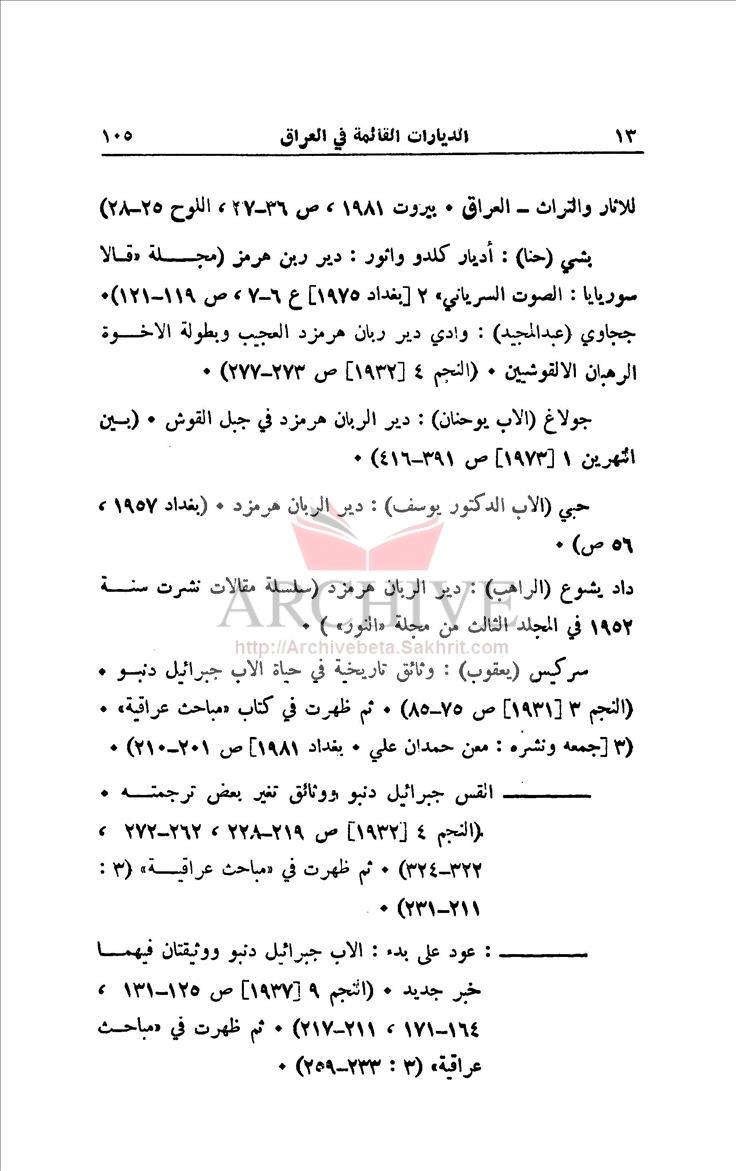 ١٣ الديارات القائمة في العراق ١٠٥
للاثار والتراث ــ العراق ٠ بيروت ١٩٨١ ، ص ٣٦ــ٤٧ ، اللوح ٢٥ــ٢٨)
بشي (حنا) : أديار كلدو واثور : دير ربن هرمز (مجـــلة «قـالا
سوريايا : الصوت السرياني» ٢ [بغداد ١٩٧٥] ع ٦ــ٧ ، ص ١١٩ــ١٢١)٠
ججاوي (عبدالمجيد) : وادي دير ربان هرمزد العجيب وبطولة الاخــوة
الرهبان الالقوشيين ٠ (النجم ٤ [١٩٣٢] ص ٢٧٣ــ٢٧٧) ٠
جولاغ (الاب يوحنان) : دير الربان هرمزد في جبل القوش ٠ (بـين
النهرين ١ [١٩٧٣] ص ٣٩١ــ٤١٦) ٠
حبي (الاب الدكتور يوسف) : دير الربان هرمزد ٠ (بغداد ١٩٥٧ ،
٥٦ ص) ٠
داد يشوع (الراهب) : دير الربان هرمزد (سلسلة مقالات نشرت سنــة
١٩٥٢ في المجلد الثالث من مجلة «النور» ) ٠
ARCHIVE
http://Archivebeta.Sakhrit.com
سركيس (يعقوب) : وثائق تاريخية في حياة الاب جبرائيل دنبـو ٠
(النجم ٣ [١٩٣١] ص ٧٥ــ٨٥) ٠ ثم ظهرت في كتاب «مباحث عراقية» ٠
(٣ [جمعه ونشره : معن حمدان علي ٠ بغداد ١٩٨١] ص ٢٠١ــ٢١٠) ٠
ــــــــــ القس جبرائيل دنبو ووثائق تغير بعض ترجمتــه ٠
(النجم ٤ [١٩٣٢] ص ٢١٩ــ٢٢٨ ، ٢٦٢ــ٢٧٢ ،
٣٢٢ــ٣٢٤) ٠ ثم ظهرت في «مباحث عراقيــة» (٣ :
٢١١ــ٢٣١) ٠
ــــــــــ : عود على بدء : الاب جبرائيل دنبو ووثيقتان فيهمــا
خبر جديد ٠ (النجم ٩ [١٩٣٧] ص ١٢٥ــ١٣١ ،
١٦٤ــ١٧١ ، ٢١١ــ٢١٧) ٠ ثم ظهرت في «مباحــث
عراقية» (٣ : ٢٣٣ــ٢٥٩) ٠